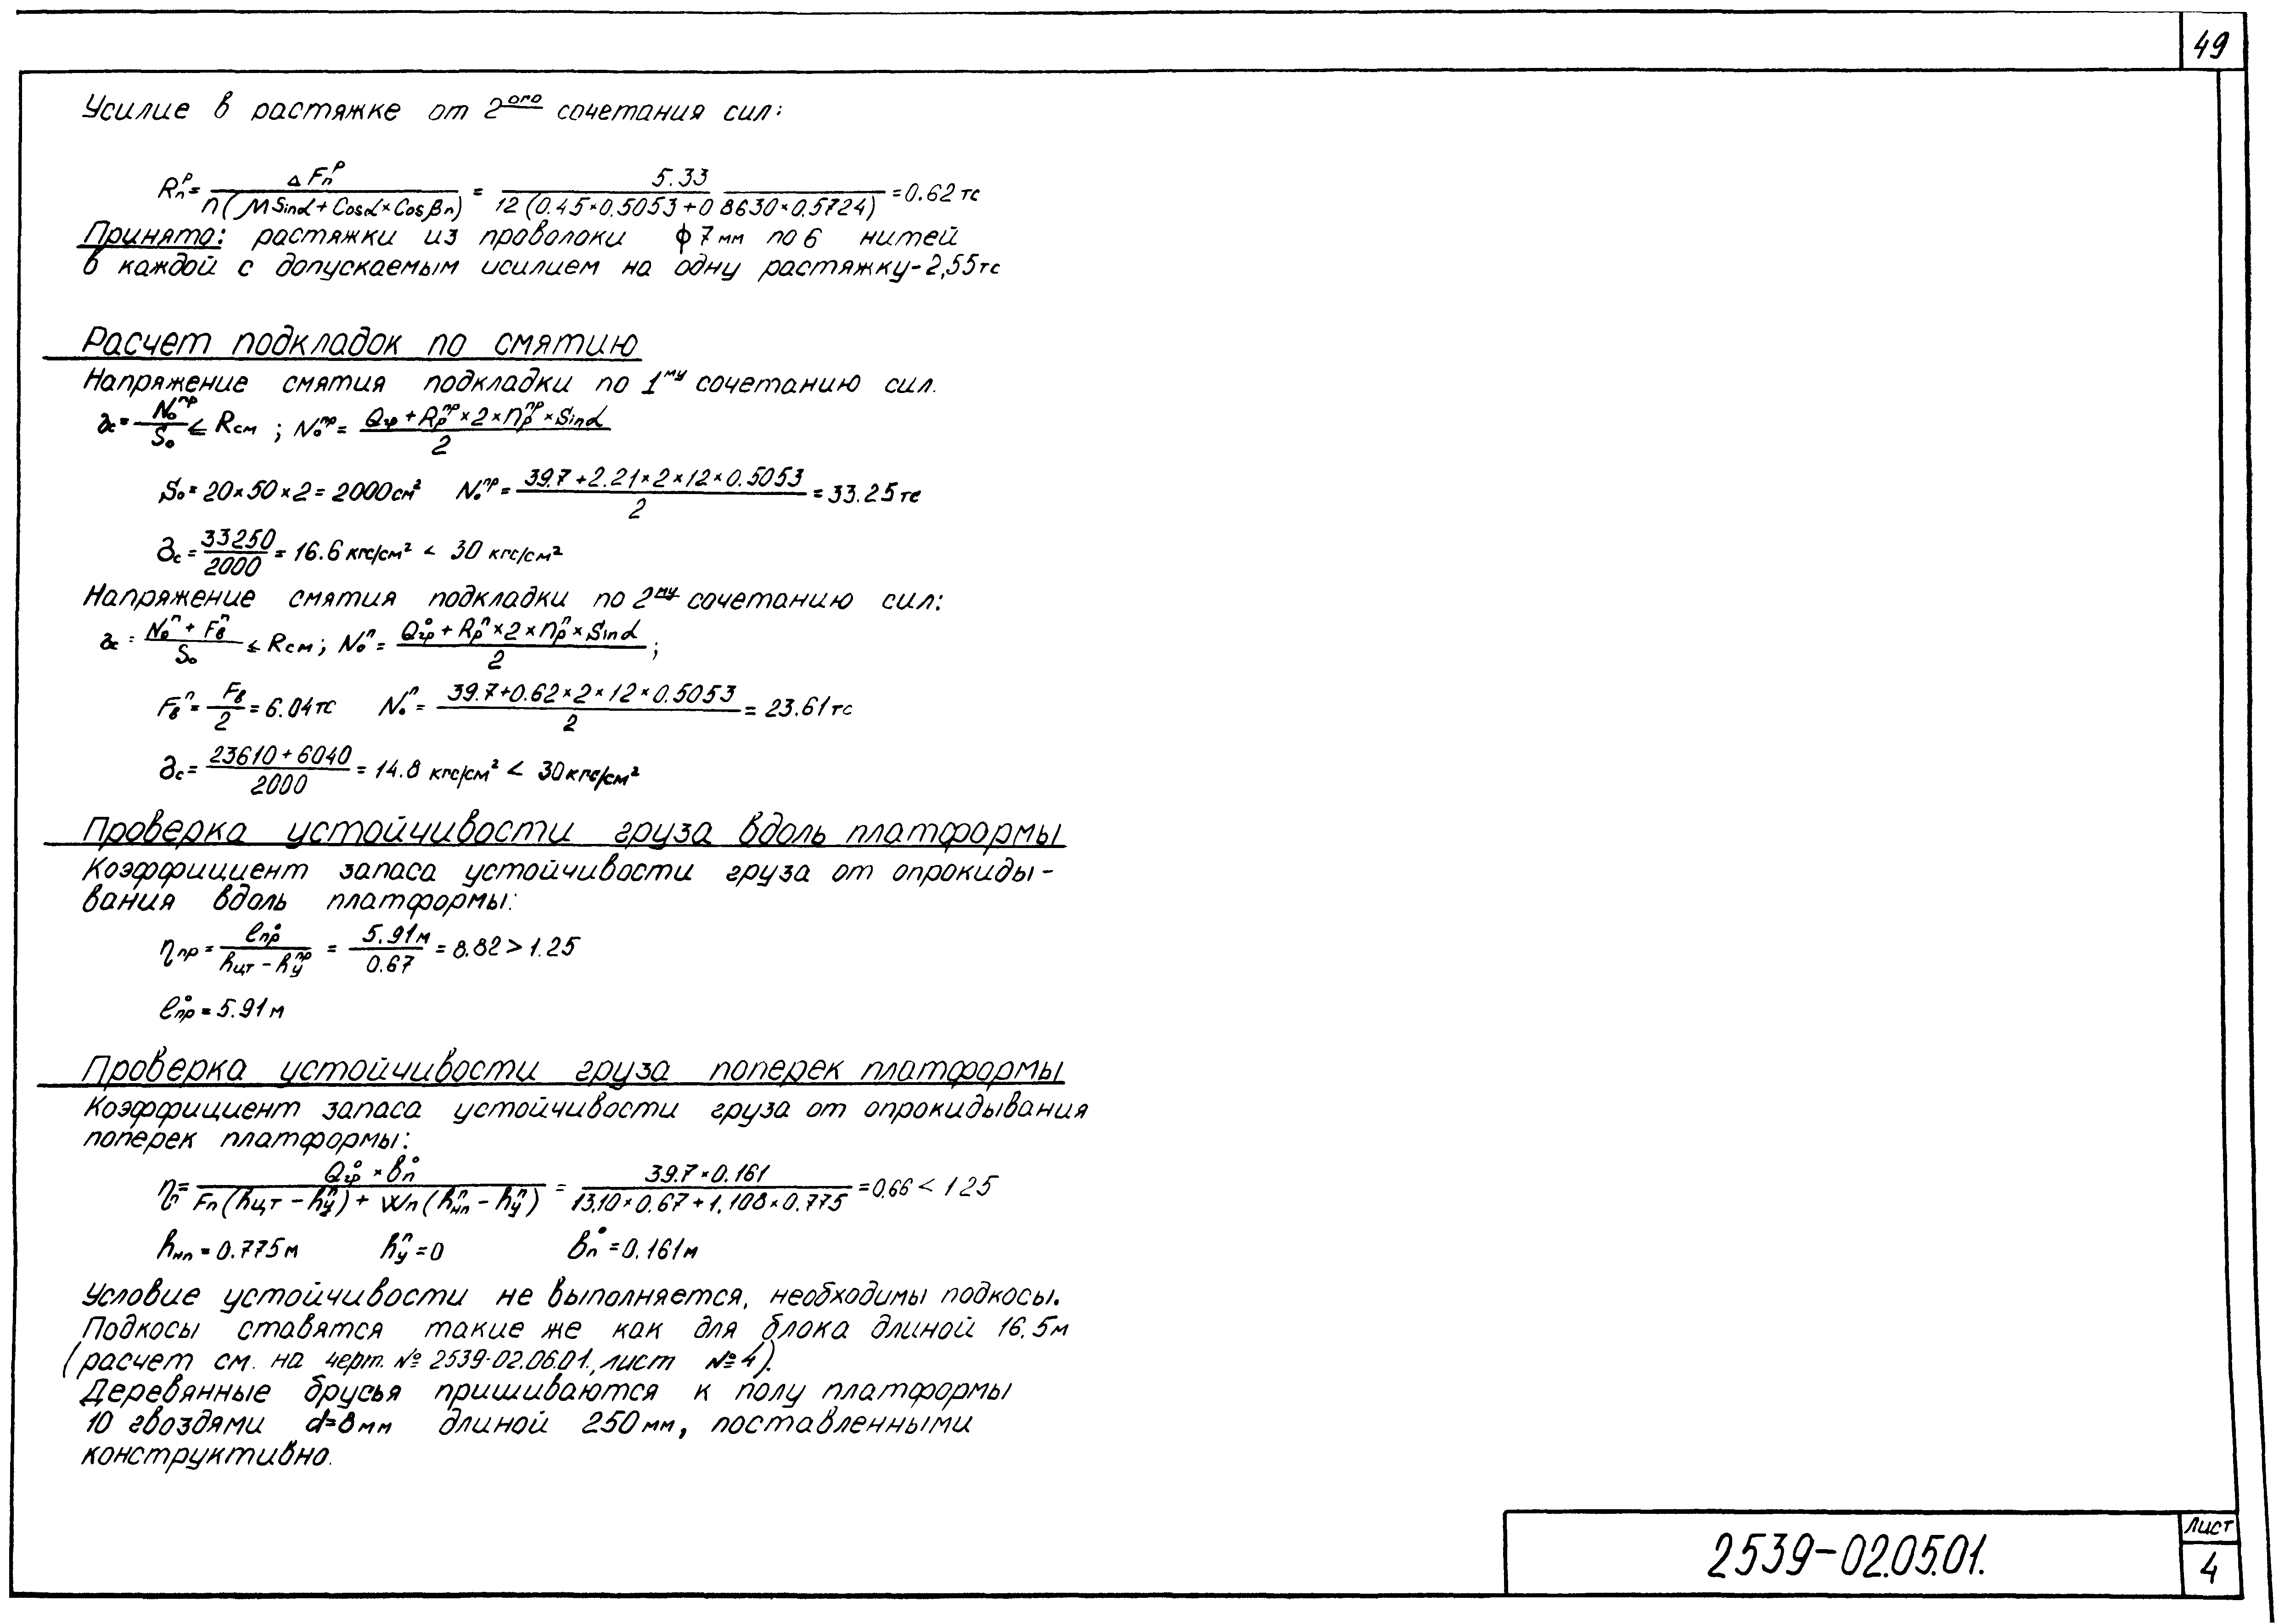 49
Усилие в растяжке от 2ого сочетания сил:
Rпр = ΔFпр / n(μ Sinα + Cosα × Cosβп) = 5.33 / 12(0.45×0.5053+0 8630×0.5724) = 0.62 тс
Принято: растяжки из проволоки ϕ 7 мм по 6 нитей
в каждой с допускаемым усилием на одну растяжку - 2,55тс
Расчет подкладок по смятию
Напряжение смятия подкладки по 1му сочетанию сил.
∂c = Nопр / Sо ≤ Rсм ; Nопр = Qгр + Rрпр × 2 × nрпр × Sinα / 2
Sо = 20×50×2 = 2000см² Nопр = 39.7 + 2.21×2×12×0.5053 / 2 = 33.25тс
∂c = 33250 / 2000 = 16.6 кгс/см² < 30 кгс/см²
Напряжение смятия подкладки по 2му сочетанию сил:
∂c = Nоп + Fвп / Sо ≤ Rсм ; Nоп = Qгр° + Rрп × 2 × nрп × Sinα / 2 ;
Fвп = Fв / 2 = 6.04тс Nоп = 39.7+0.62×2×12×0.5053 / 2 = 23.61тс
∂c = 23610 + 6040 / 2000 = 14.8 кгс/см² < 30кгс/см²
Проверка устойчивости груза вдоль платформы
Коэффициент запаса устойчивости груза от опрокиды-
вания вдоль платформы:
ηпр = ℓпр° / hцт - hупр = 5.91м / 0.67 = 8.82 > 1.25
ℓпр° = 5.91м
Проверка устойчивости груза поперек платформы
Коэффициент запаса устойчивости груза от опрокидывания
поперек платформы:
ηп = Qгр° × bп° / Fп(hцт - hуп) + Wп(hнпп - hуп) = 39.7×0.161 / 13,10×0.67 + 1,108×0.775 = 0,66 < 1 25
hнп = 0.775м hуп = 0 bп° = 0.161м
Условие устойчивости не выполняется, необходимы подкосы.
Подкосы ставятся такие же как для блока длиной 16.5м
(расчет см. на черт. № 2539-02.06.01., лист №4).
Деревянные брусья пришиваются к полу платформы
10 гвоздями d=8мм длиной 250мм, поставленными
конструктивно.
2539-02.05.01.
Лист
4